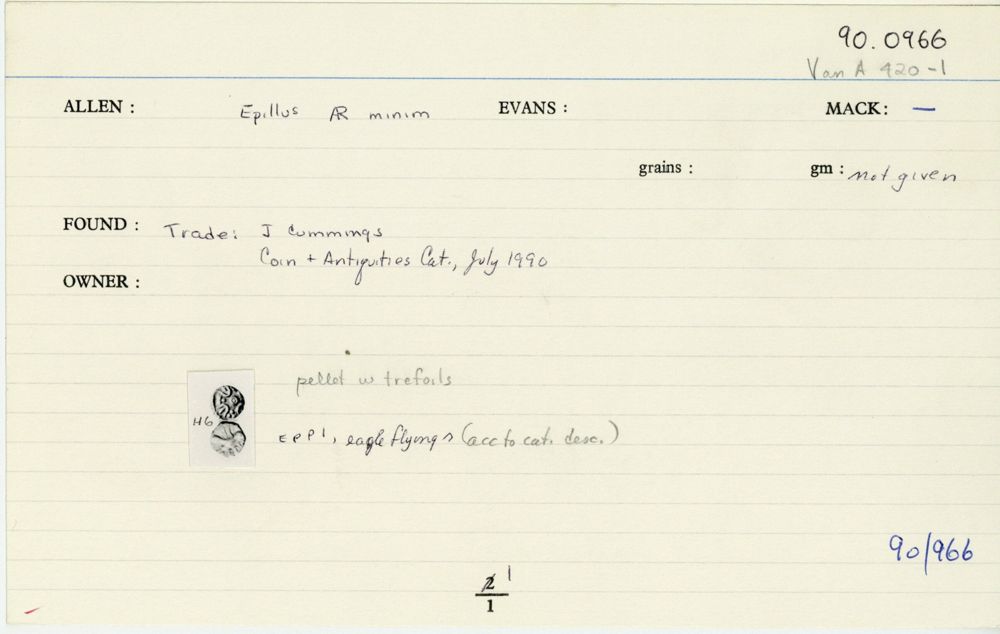 90.0966
Van A 420-1
ALLEN : Epillus AR minim EVANS : MACK: —
grains : gm : not given
FOUND : Trade: J Cummings
Coin + Antiquities Cat., July 1990
OWNER :
pellet w trefoils
H6
EPPI, eagle flying (acc to cat. desc.)
90/966
2 1
1